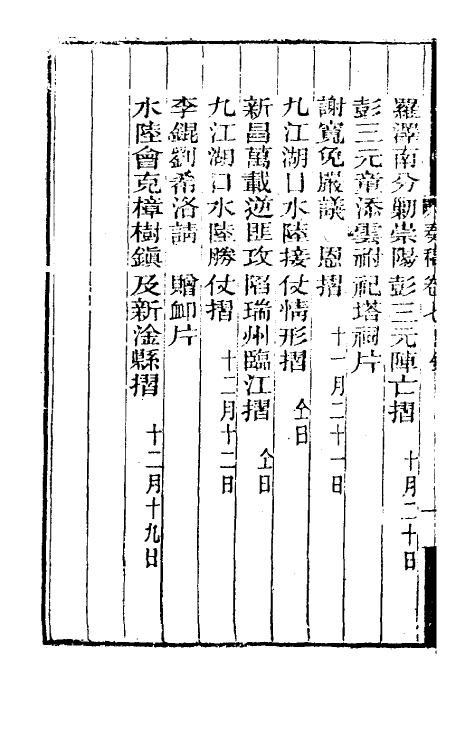 奏稿卷七目錄 一
羅澤南分勦崇陽彭三元陣亡摺 十月二十日
彭三元童添雲祔祀塔祠片
謝寬免嚴議 恩摺 十一月二十一日
九江湖口水陸接仗情形摺 仝日
新昌萬載逆匪攻陷瑞州臨江摺 仝日
九江湖口水陸勝仗摺 十二月十二日
李錕劉希洛請 贈卹片
水陸會克樟樹鎮及新淦縣摺 十二月十九日